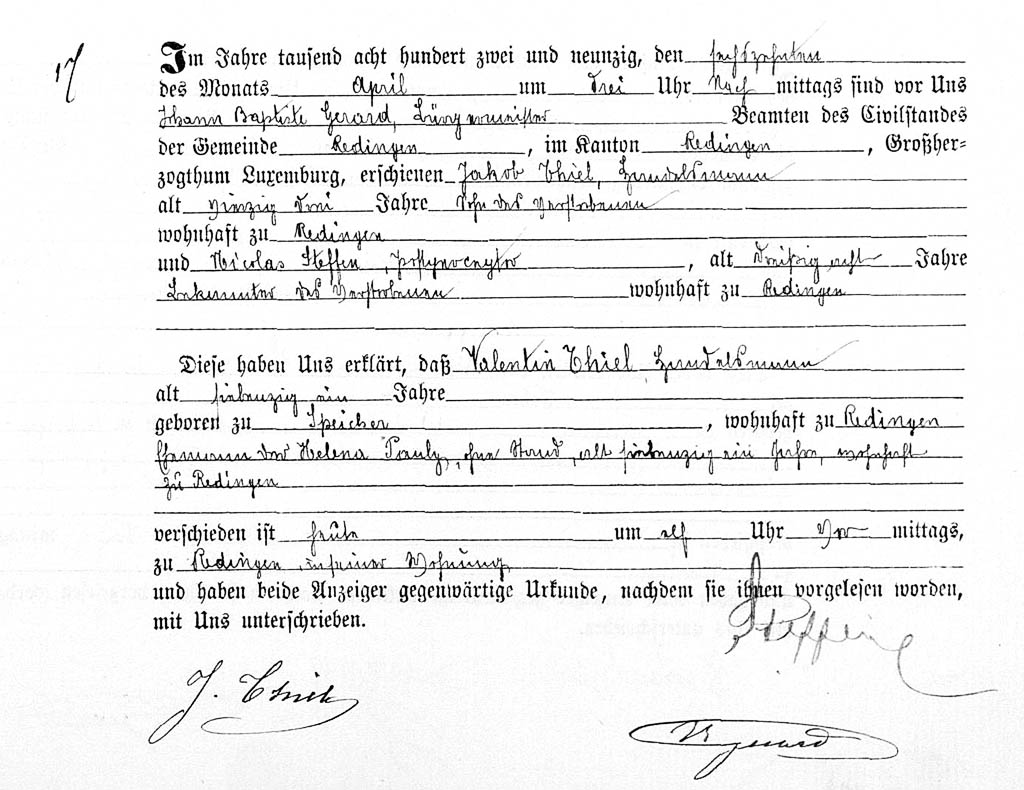 17
Im Jahre tausend acht hundert zwei und neunzig, den sechszehnten
des Monats April um drei Uhr Nach mittags sind vor Uns
Johann Baptiste Gerard, Bürgermeister Beamten des Civilstandes
der Gemeinde Redingen, im Kanton Redingen, Großher-
zogthum Luxemburg, erschienen Jakob Thiel, Handelsmann
alt vierzig drei Jahre Sohn des Verstorbenen
wohnhaft zu Redingen
und Nicolas Steffen, alt dreißig acht Jahre
Bekannter des Verstorbenen wohnhaft zu Redingen
Diese haben Uns erklärt, daß Valentin Thiel Handelsmann
alt siebenzig ein Jahre
geboren zu Speicher, wohnhaft zu Redingen
Ehemann der Helena Pauly, ohne Stand, alt siebenzig ein Jahre, wohnhaft
zu Redingen
verschieden ist heute um elf Uhr Vor mittags,
zu Redingen in seiner Wohnung
und haben beide Anzeiger gegenwärtige Urkunde, nachdem sie ihnen vorgelesen worden,
mit Uns unterschrieben.
J. Thiel